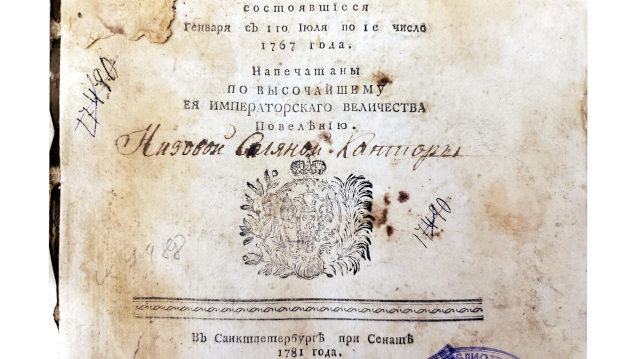 состоявшїеся
Генваря съ 1 го Іюля по 1 е число
1767 года.
Напечатаны
по высочайшему
ея императорскаго величества
Повелѣнїю.
Низовой Соляной Канторы
17490
17490
Въ Санктпетербургѣ при Сенатѣ
1781 года.